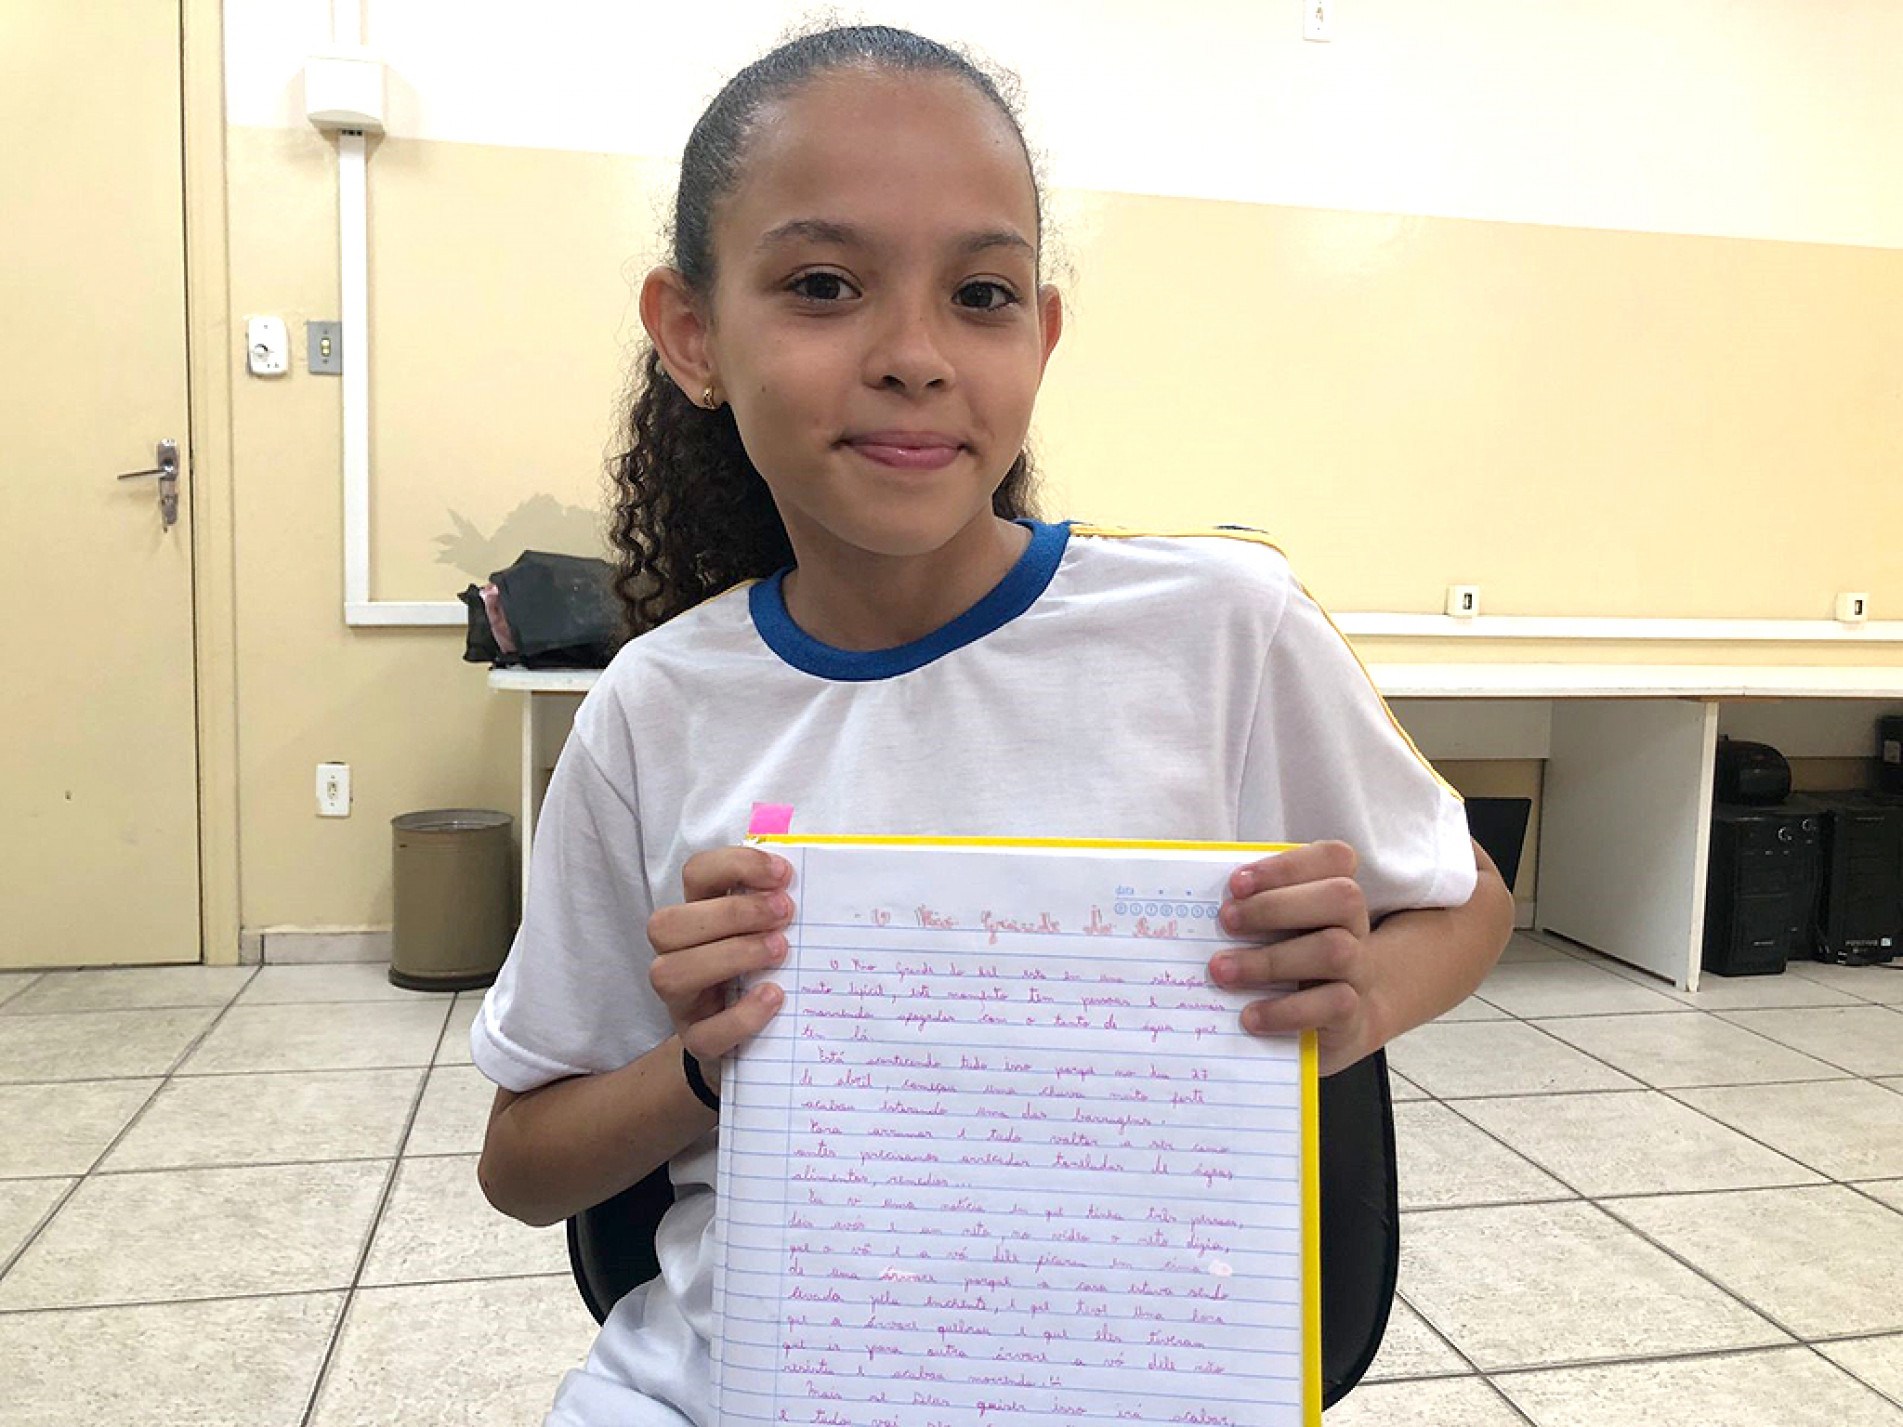 data
D S T Q Q S S
- O Rio Grande do Sul -
O Rio Grande do Sul esta em uma situação
muto dificil, este momento tem pessoas e animais
morrendo afogados com o tanto de água que
tem lá.
Está acontecendo tudo isso porque no dia 27
de abril, começou uma chuva muito forte
acabou estorando uma das barragens.
Para arrumar e tudo voltar a ser como
antes precisamos arrecadar toneladas de águas,
alimentos, remedios...
Eu vi uma notícia em que tinha três pessoas,
dois avós e um neto, no vídeo o neto dizia,
que o vô e a vó dele ficaram em cima
de uma árvore porque a casa estava sendo
levada pela enchente, e que teve uma hora
que a árvore quebrou e que eles tiveram
que ir para outra árvore a vó dele não
resistiu e acabou morrendo.
Mais se Deus quiser isso irá acabar,
e tudo vai